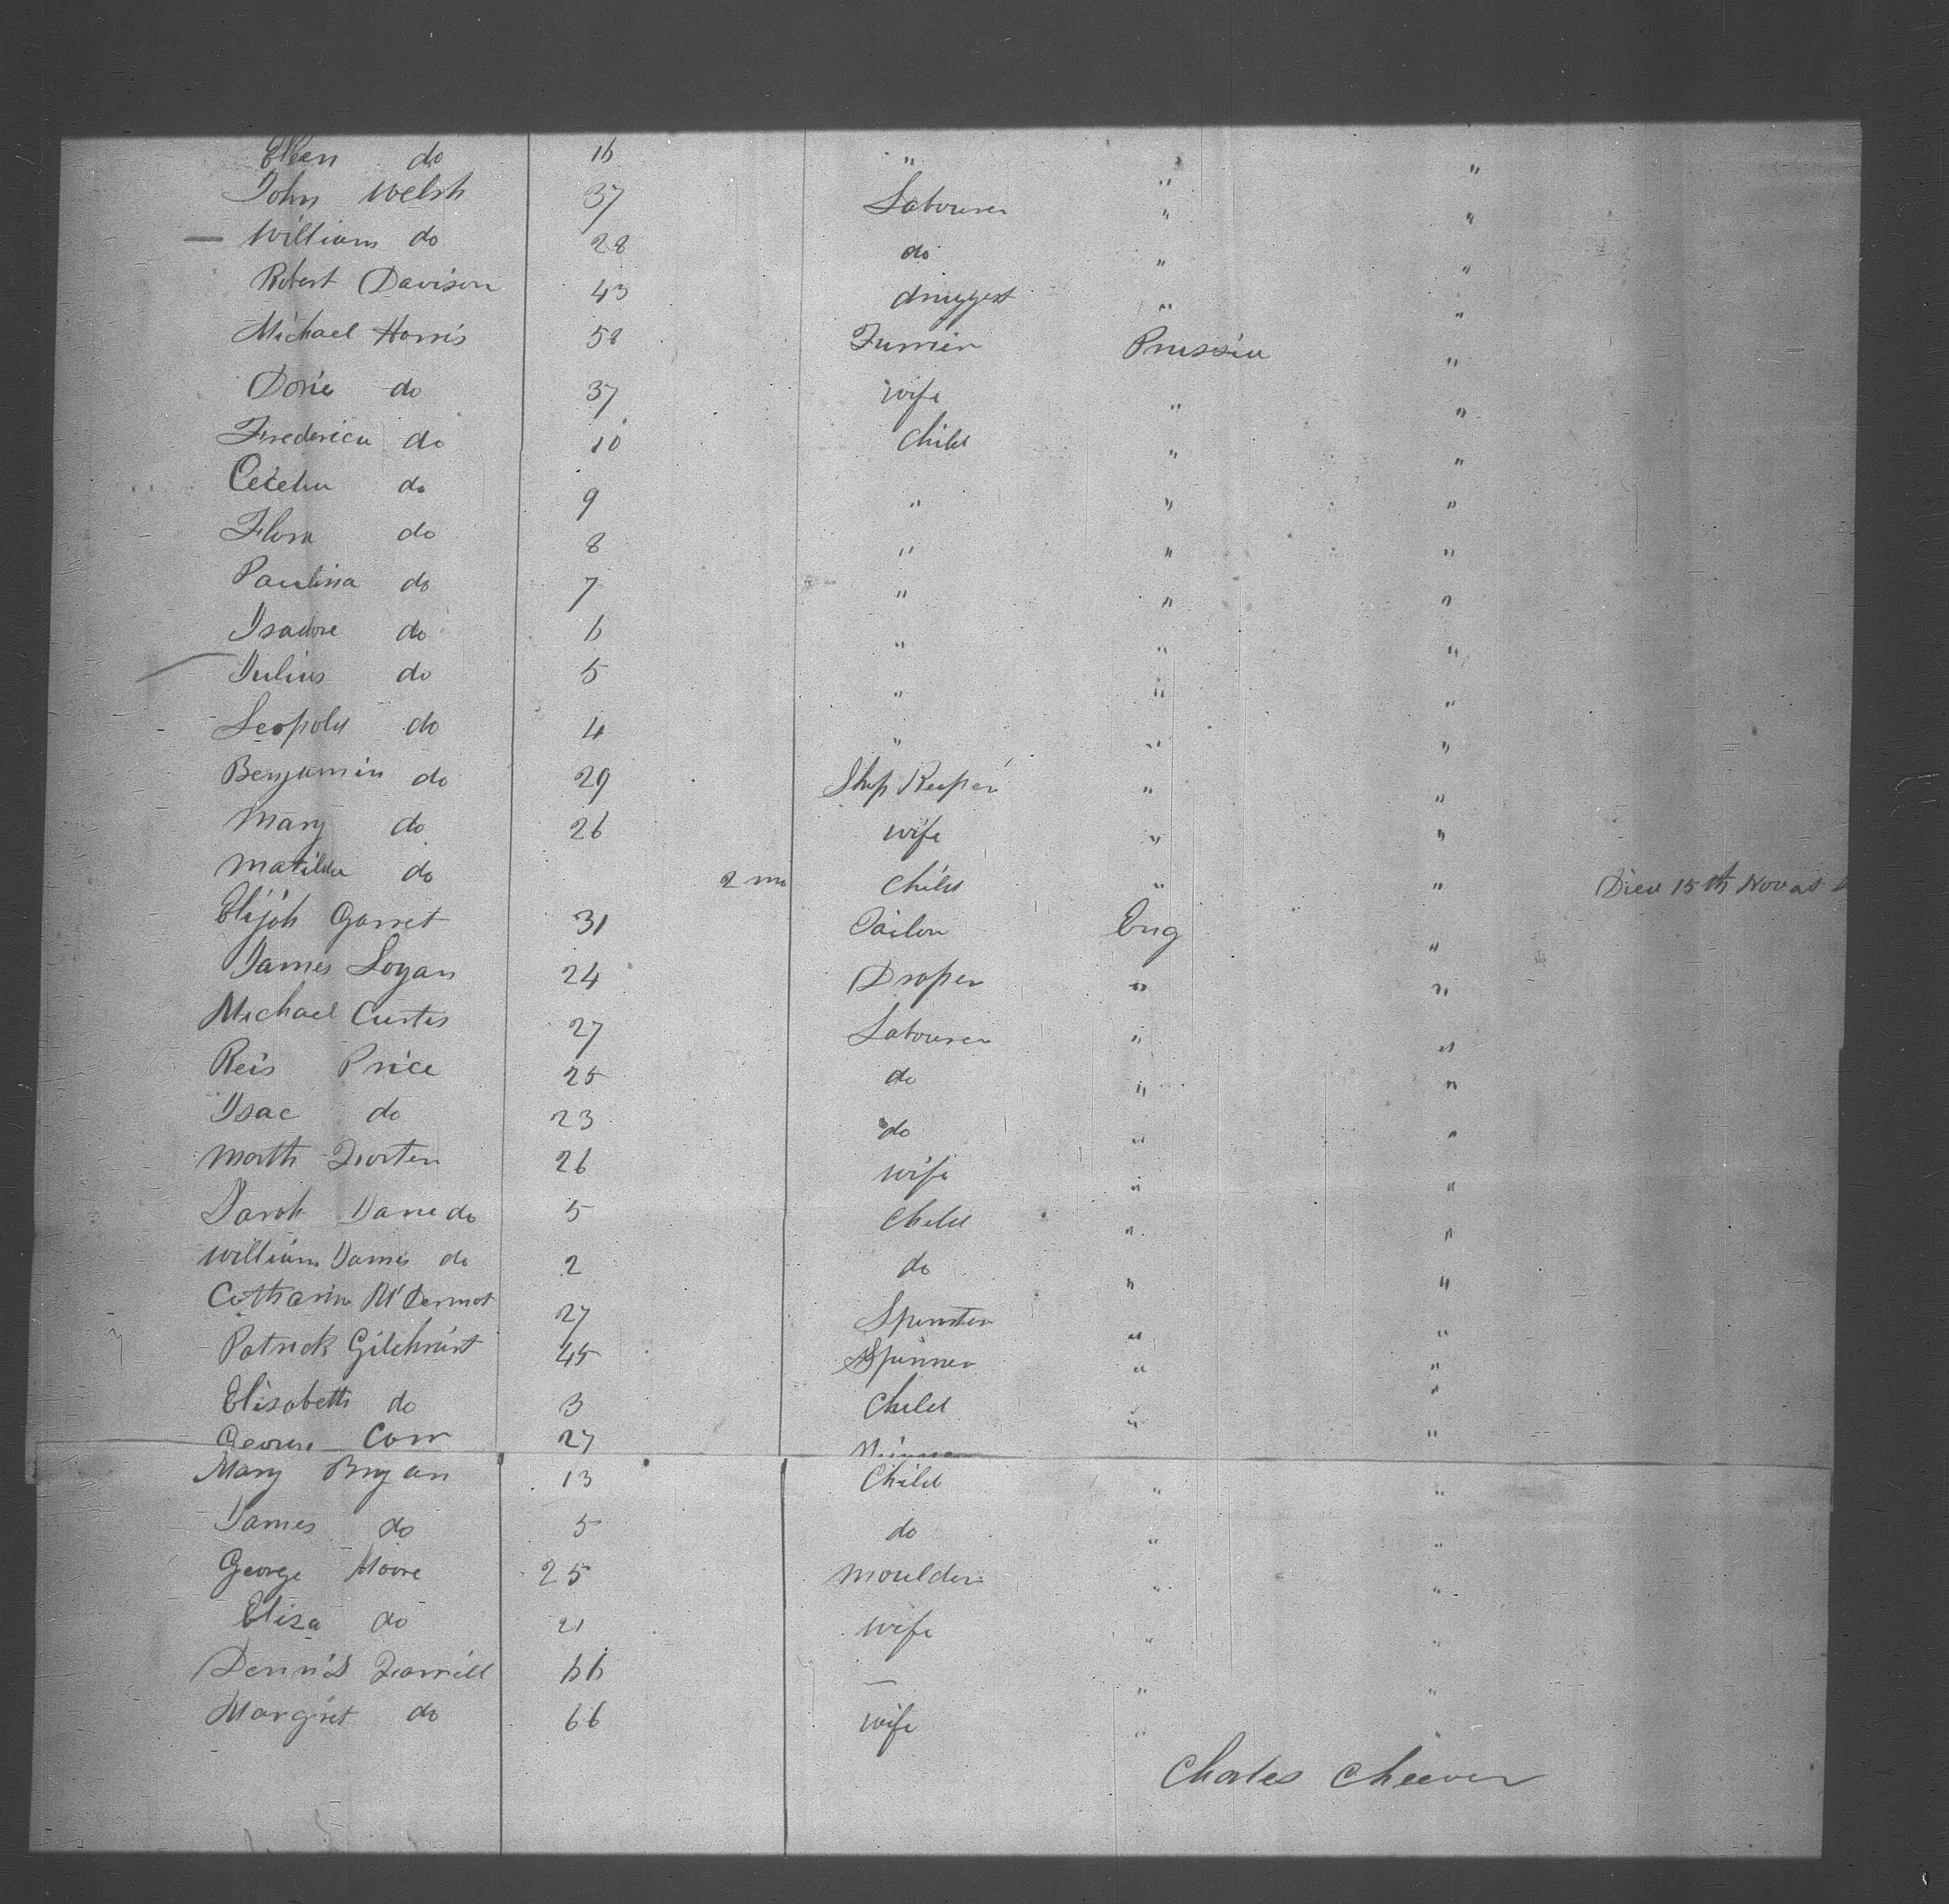 Ellen do 16 " " "
John Welsh 37 Labourer " "
William do 28 do " "
Robert Davison 43 druggest " "
Michael Harris 58 Furrier Prussia "
Dorie do 37 wife " "
Frederica do 10 Child " "
Cecelia do 9 " " "
Flora do 8 " " "
Paulina do 7 " " "
Isadore do 6 " " "
Julius do 5 " " "
Leopold do 4 " " "
Benjamin do 29 Shop Keeper " "
Mary do 26 wife " "
Matilda do 2 mo Child " " Died 15th Nov at
Elijah Garret 31 Tailor Eng "
James Logan 24 Draper " "
Michael Curtis 27 Labourer " "
Reis Price 25 do " "
Isac do 23 do " "
26 wife " "
Sarah Jane do 5 Child " "
William James do 2 do " "
Catharine McDermot 27 Spinster " "
Patrick Gilchrist 45 Spinner " "
Elisabeth do 3 Child " "
George 27 "
Mary Bryan 13 Child " "
James do 5 do " "
George Moore 25 Moulder " "
Eliza do 21 wife " "
Dennis Farrell 66 — " "
Margret do 66 wife " "
Charles Cheever